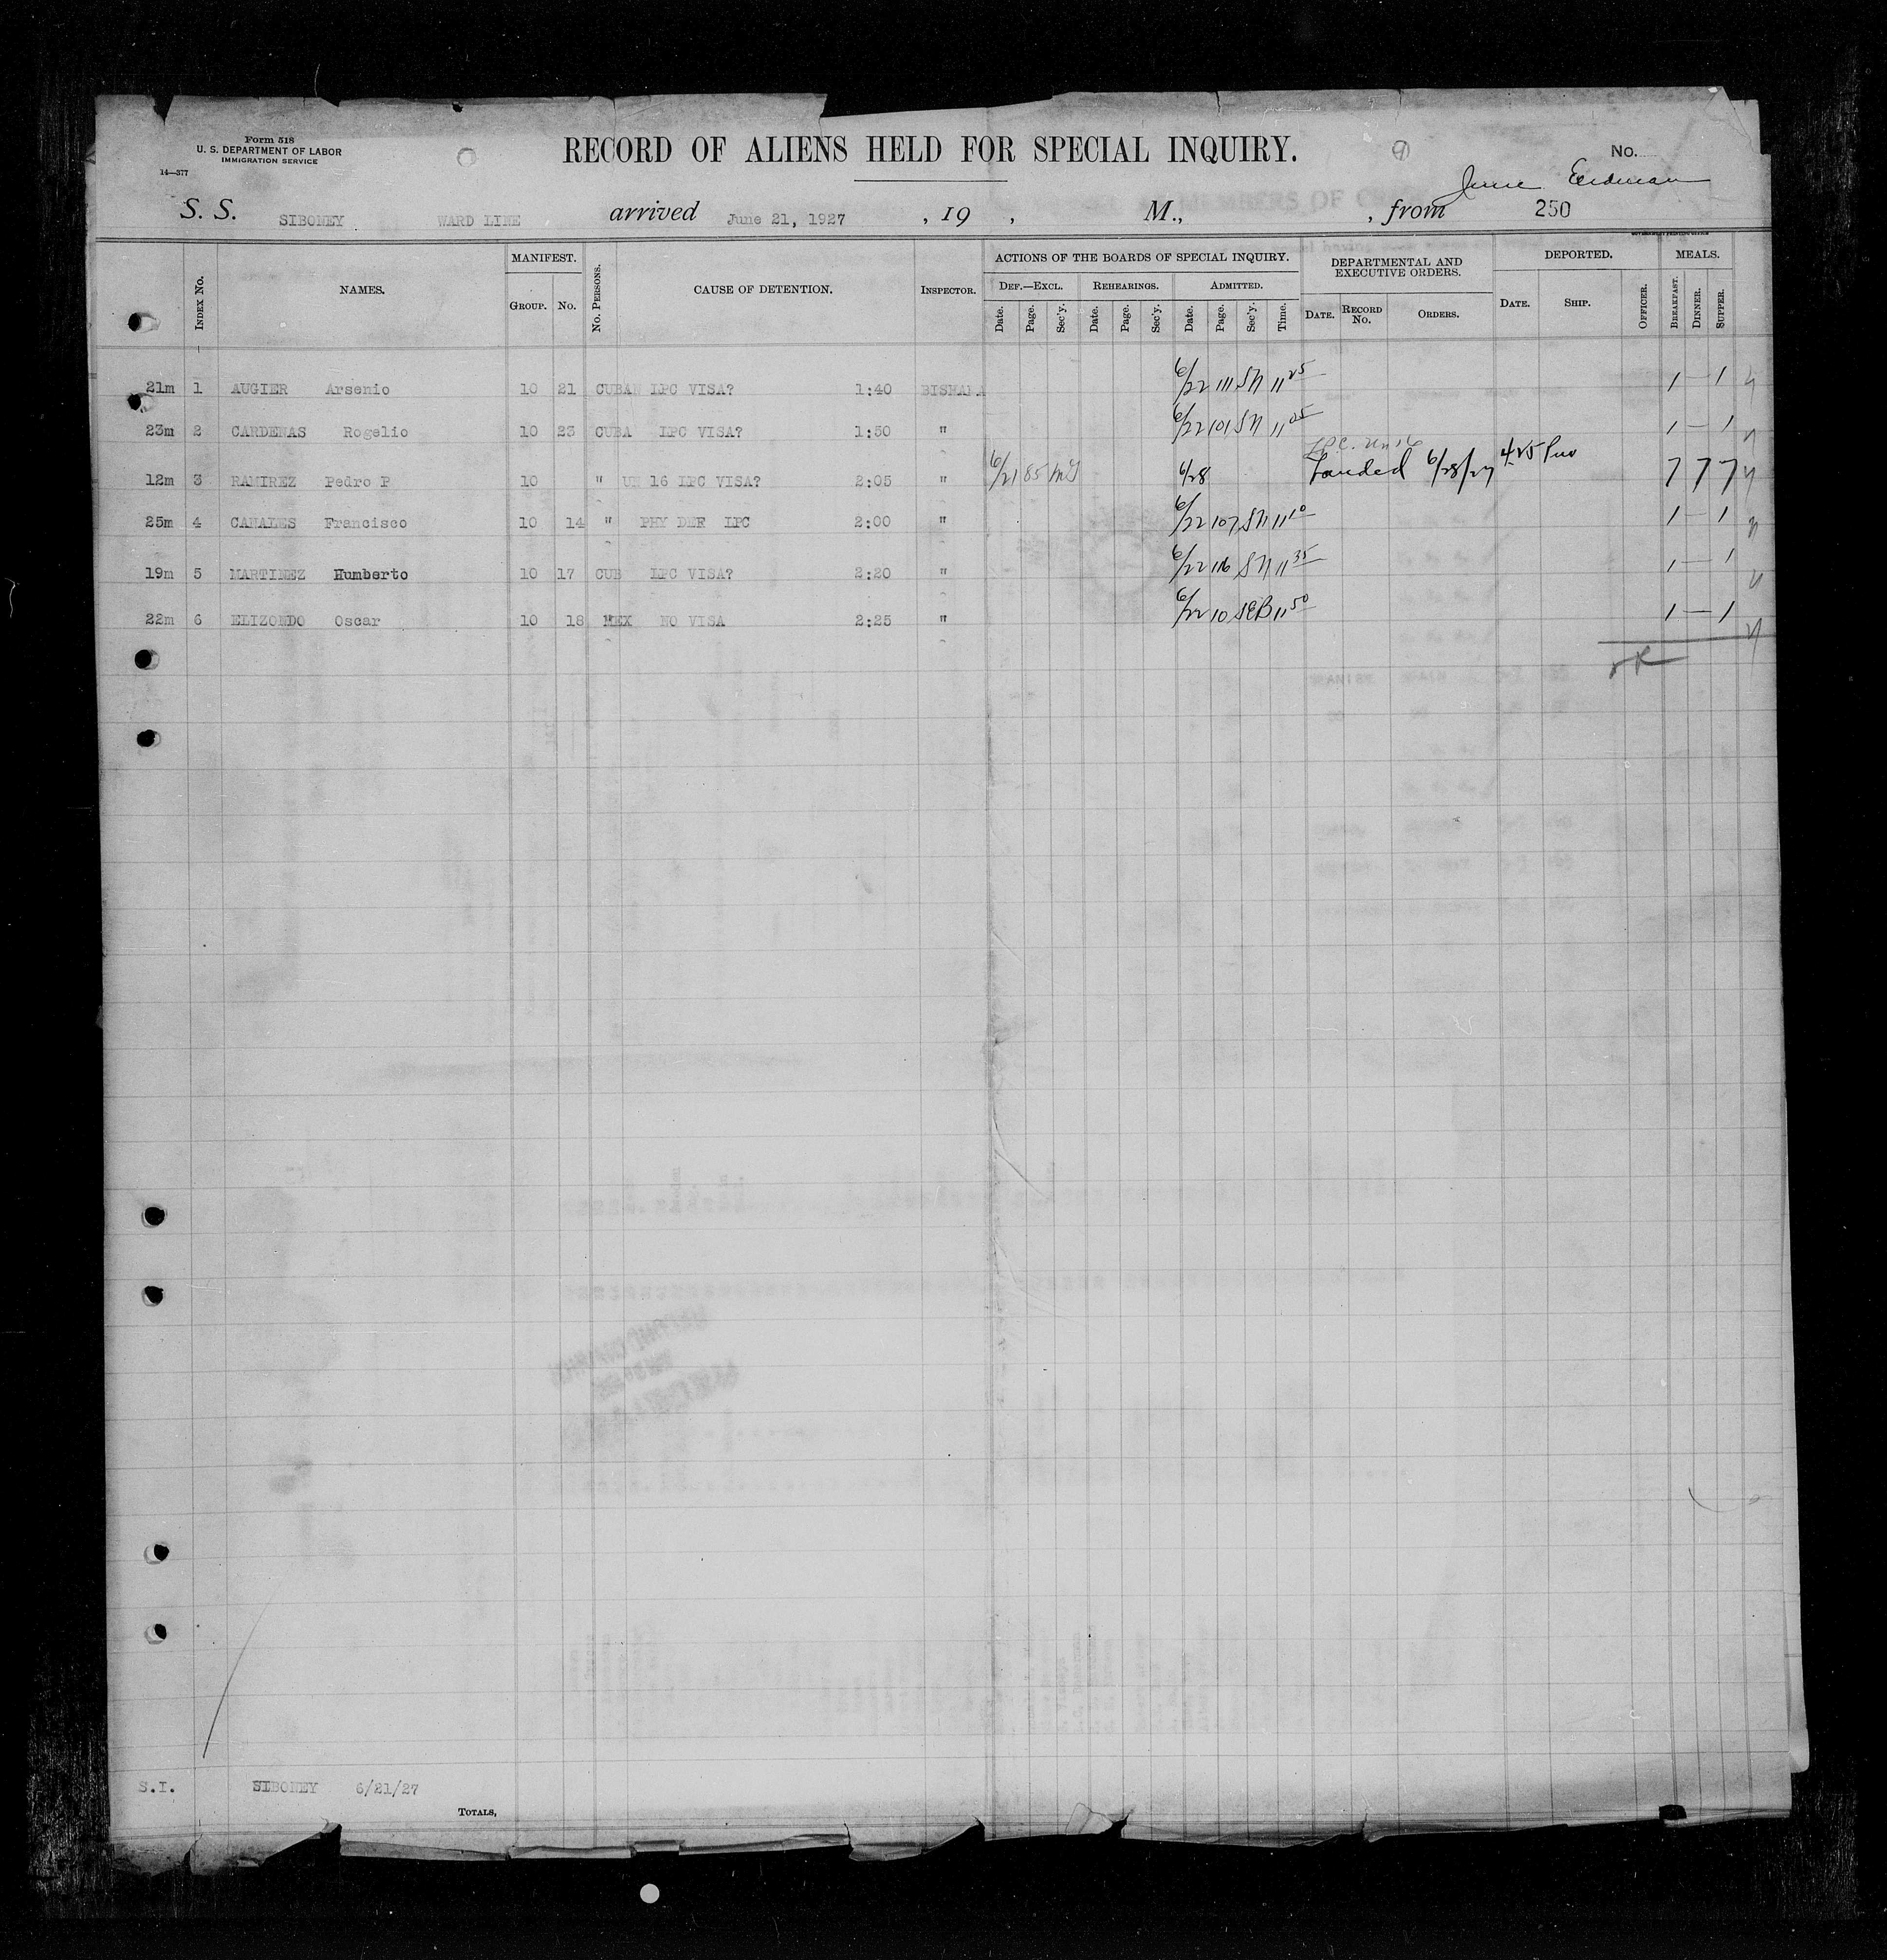 Form 518
U. S. DEPARTMENT OF LABOR
IMMIGRATION SERVICE
14—377
RECORD OF ALIENS HELD FOR SPECIAL INQUIRY.
9
No.
S. S. SIBONEY WARD LINE arrived June 21, 1927 , 19 , M., , from 250
INDEX No. NAMES. MANIFEST. GROUP. No. No. PERSONS. CAUSE OF DETENTION. INSPECTOR. ACTIONS OF THE BOARDS OF SPECIAL INQUIRY. DEPARTMENTAL AND EXECUTIVE ORDERS. DEPORTED. MEALS.
DEF.—EXCL. REHEARINGS. ADMITTED.
Date. Page. Sec'y. Date. Page. Sec'y. Date. Page. Sec'y. Time. DATE. RECORD No. ORDERS. DATE. SHIP. OFFICER. BREAKFAST. DINNER. SUPPER.
21m 1 AUGIER Arsenio 10 21 CUBAN LPC VISA? 1:40 6/22 111 SN 11 25 1 — 1
23m 2 CARDENAS Rogelio 10 23 CUBA LPC VISA? 1:50 " 6/22 101 SN 11 25 1 — 1
12m 3 RAMIREZ Pedro P 10 " UN 16 LPC VISA? 2:05 " 6/21 85 6/28 Landed 6/28/27 4 25 7 7 7
25m 4 CANALES Francisco 10 14 " PHY DEF LPC 2:00 " 6/22 107 SN 11 10 1 — 1
19m 5 MARTINEZ Humberto 10 17 CUB LPC VISA? 2:20 " 6/22 116 SN 11 35 1 — 1
22m 6 ELIZONDO Oscar 10 18 MEX NO VISA 2:25 " 6/22 10 SEB 11 50 1 — 1
S.I. SIBONEY 6/21/27
TOTALS,